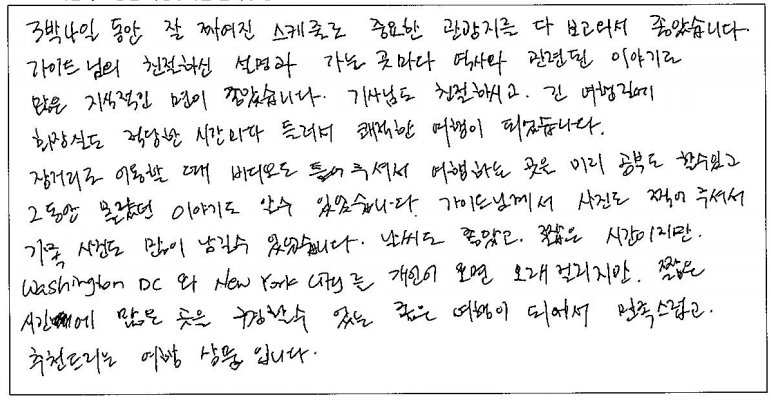 3박4일 동안 잘 짜여진 스케줄로 중요한 관광지를 다 보고와서 좋았습니다.
가이드님의 친절하신 설명과 가는 곳마다 역사와 관련된 이야기로
많은 지식적인 면이 쌓았습니다. 기사님도 친절하시고. 긴 여행길에
화장실도 적당한 시간마다 들려서 쾌적한 여행이 되었습니다.
장거리로 이동할 때 비디오도 틀어주셔서 여행하는 곳을 미리 공부도 할수있고
그동안 몰랐던 이야기도 알수 있었습니다. 가이드님께서 사진도 찍어주셔서
가족 사진도 많이 남길수 있었습니다. 날씨도 좋았고. 짧은 시간이지만.
Washington DC 와 New York City를 개인이 오면 오래걸리지만. 짧은
시간에 많은 곳을 구경할수 있는 좋은 여행이 되어서 만족스럽고.
추천드리는 여행 상품 입니다.